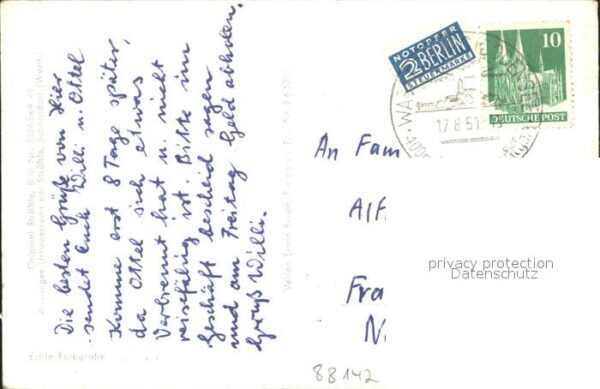 Die besten Grüße von Hier
sendet Euch Willi u. Ottel
Komme erst 8 Tage später,
da Ottel sich etwas
Verbrennt hat u. nicht
reisefähig ist. Bitte im
Geschäft bescheid sagen
und am Freitag Geld abholen.
Gruß Willi.
Original Strähle, Bild Nr.
Alleiniges Urheberrecht bei Strähle, Schorndorf (Württ.)
Verlag Erwin
Echte Fotografie
NOTOPFER
2 BERLIN
STEUERMARKE
10
DEUTSCHE POST
17.8.51
An Fam
Alf
Fra
N
privacy protection
Datenschutz
88142